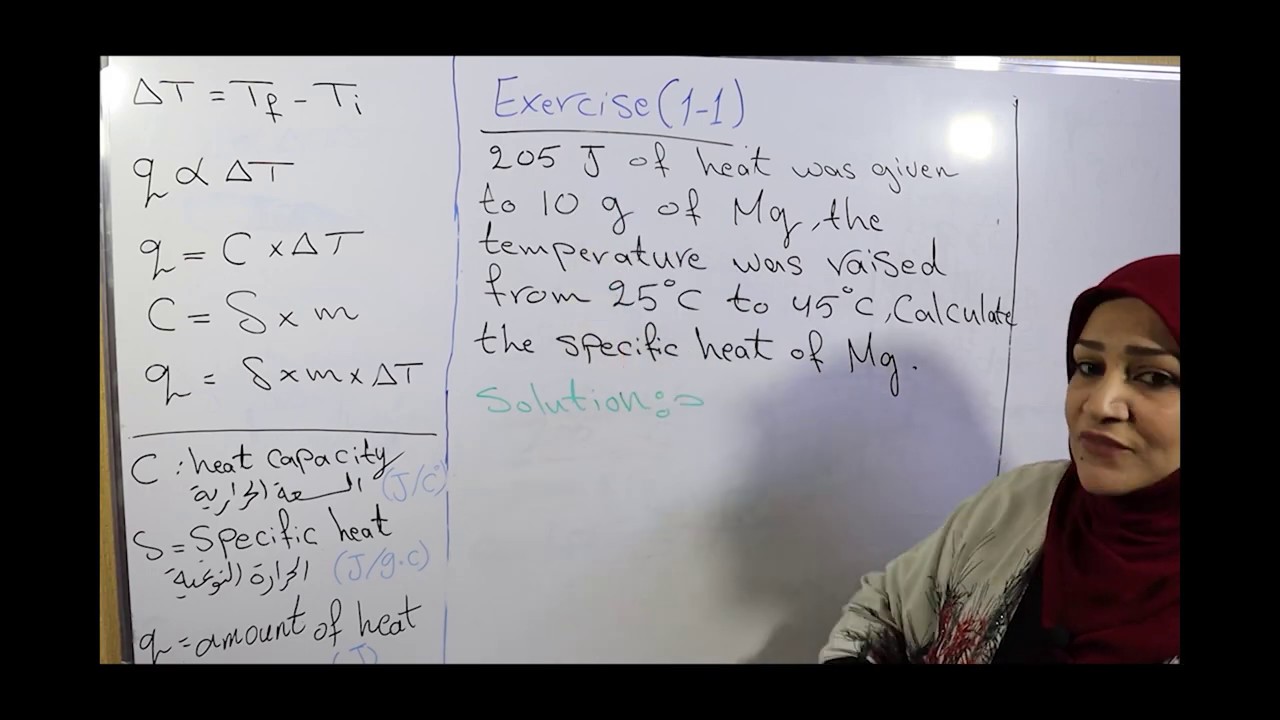 ΔT = Tf - Ti
q α ΔT
q = C × ΔT
C = S × m
q = S × m × ΔT
C : heat capacity
السعة الحرارية (J/C°)
S = Specific heat
الحرارة النوعية (J/g.c)
q = amount of heat
(J)
Exercise (1-1)
205 J of heat was given
to 10 g of Mg, the
temperature was raised
from 25°C to 45°C, Calculate
the specific heat of Mg.
Solution: